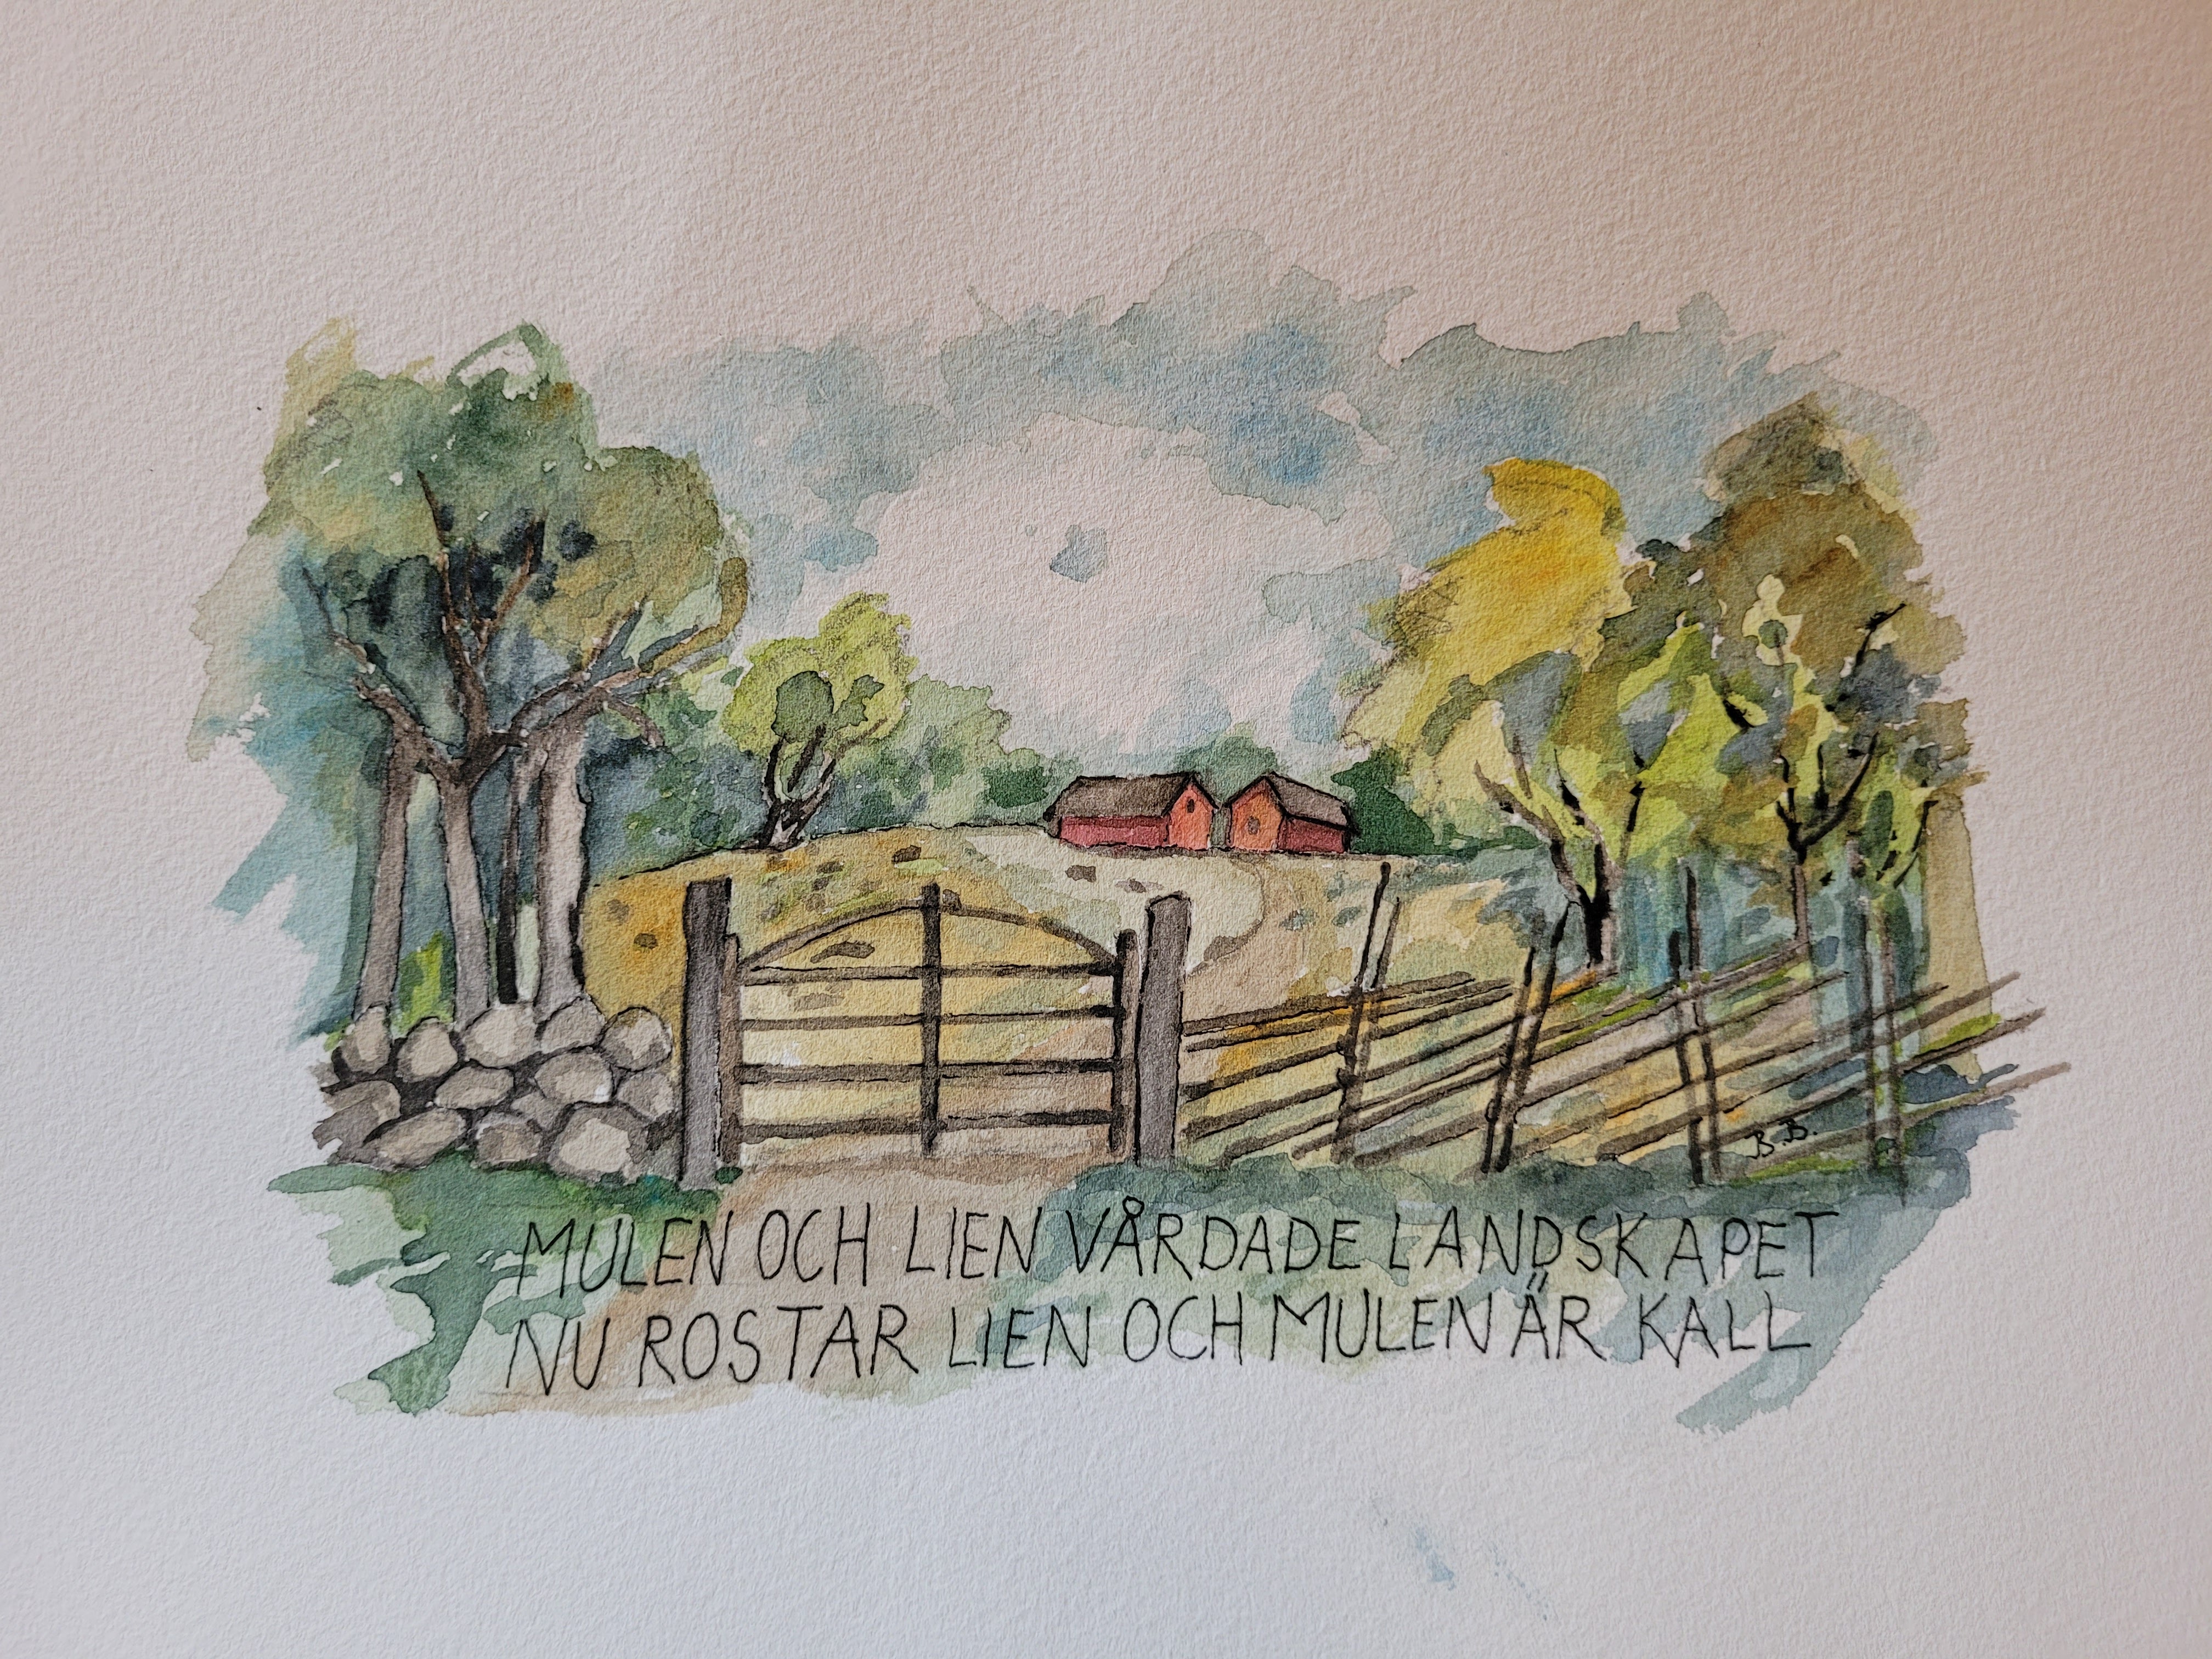 B.B.
MULEN OCH LIEN VÅRDADE LANDSKAPET
NU ROSTAR LIEN OCH MULEN ÄR KALL